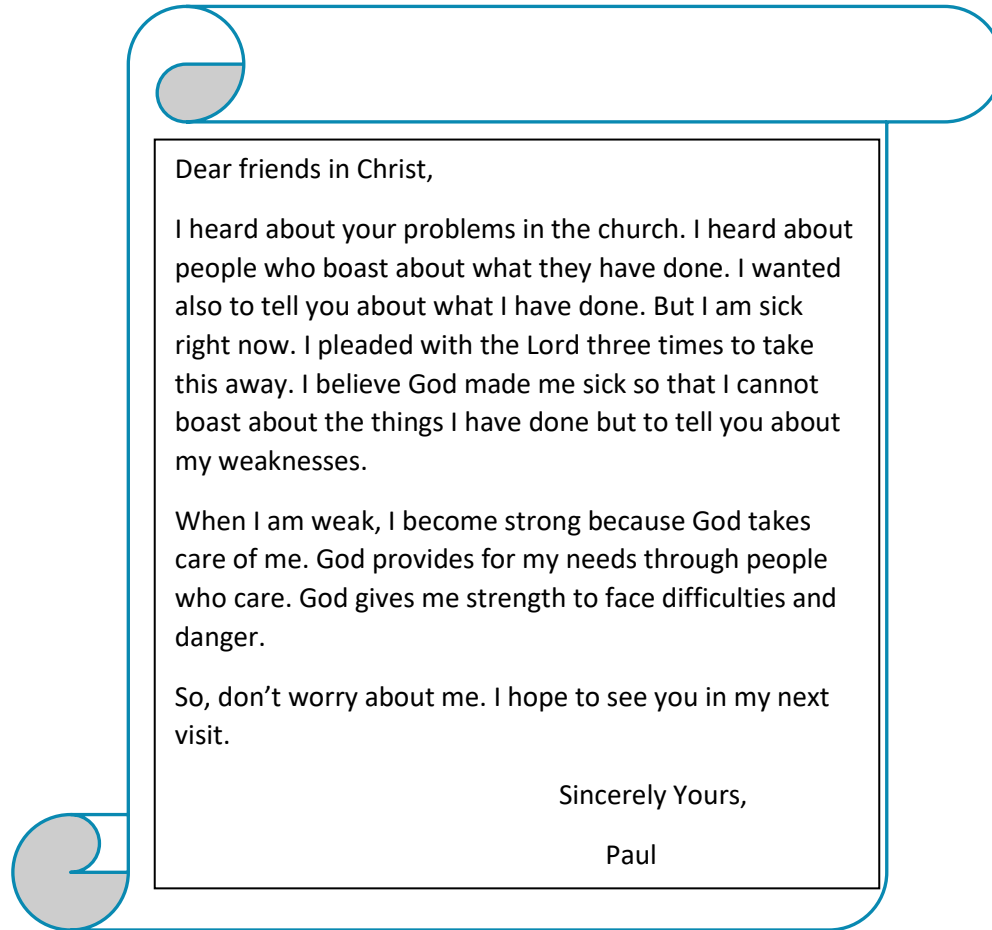 Dear friends in Christ,
I heard about your problems in the church. I heard about
people who boast about what they have done. I wanted
also to tell you about what I have done. But I am sick
right now. I pleaded with the Lord three times to take
this away. I believe God made me sick so that I cannot
boast about the things I have done but to tell you about
my weaknesses.
When I am weak, I become strong because God takes
care of me. God provides for my needs through people
who care. God gives me strength to face difficulties and
danger.
So, don’t worry about me. I hope to see you in my next
visit.
Sincerely Yours,
Paul